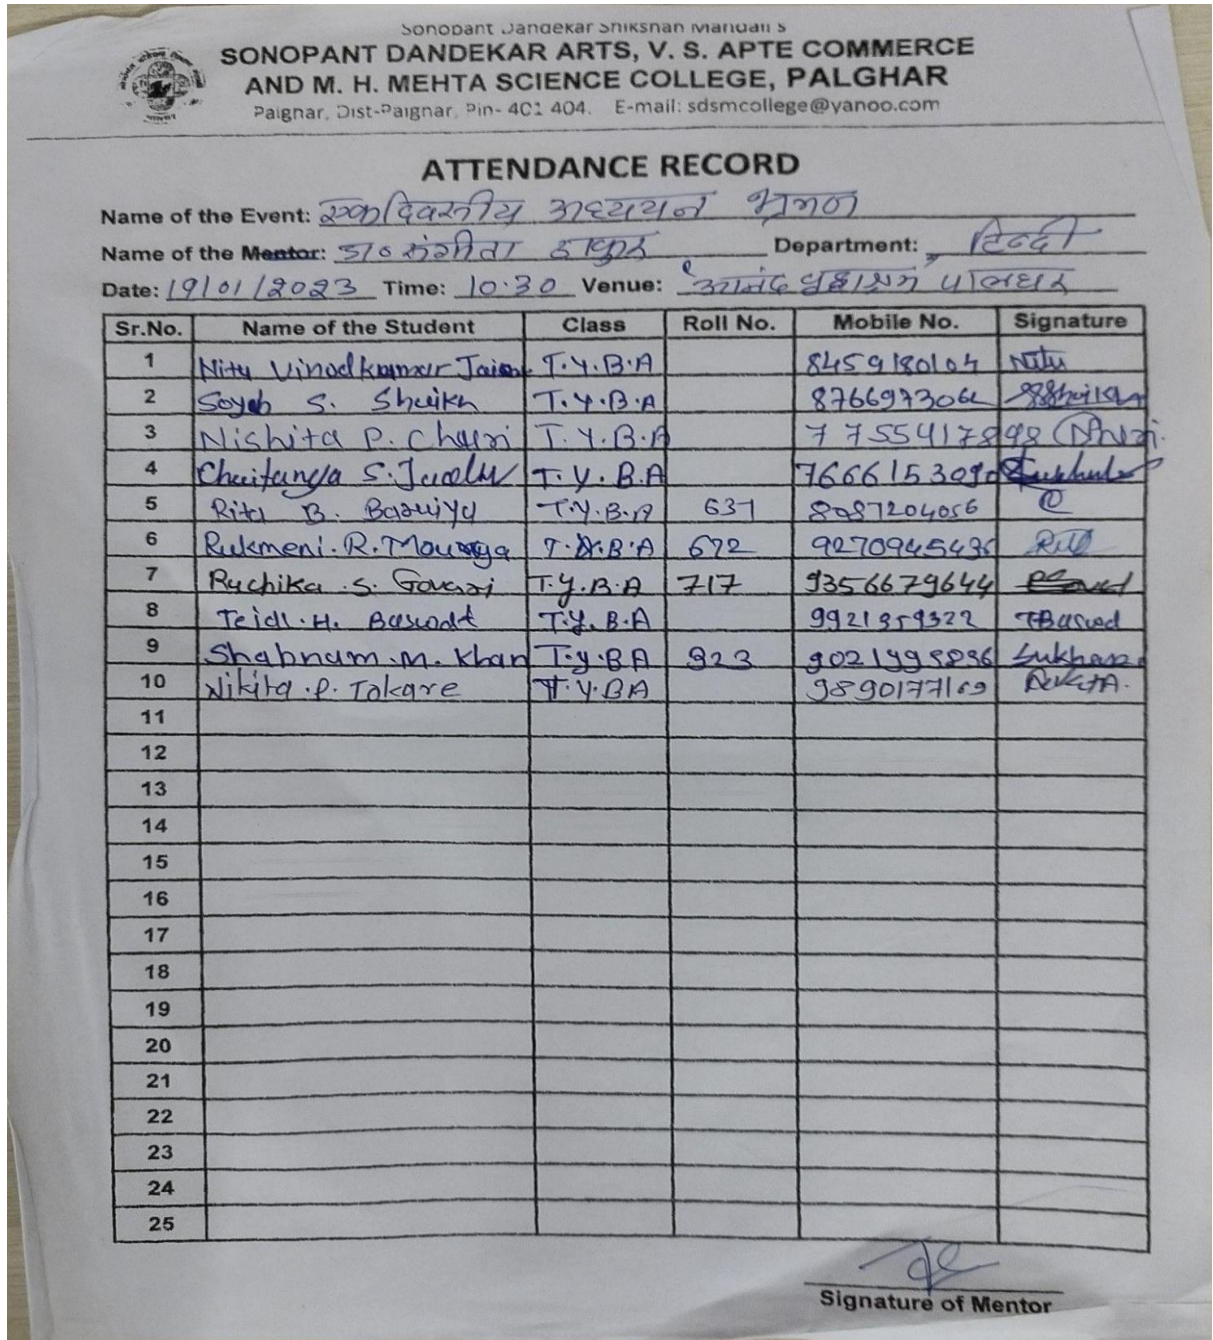 Sonopant Dandekar Shikshan Mandali's
SONOPANT DANDEKAR ARTS, V. S. APTE COMMERCE
AND M. H. MEHTA SCIENCE COLLEGE, PALGHAR
Palghar, Dist-Palghar, Pin- 401 404. E-mail: sdsmcollege@yahoo.com
ATTENDANCE RECORD
Name of the Event: एकदिवसीय अध्ययन भ्रमण
Name of the Mentor: डॉ० संगीता ठाकुर Department: हिन्दी
Date: 19/01/2023 Time: 10.30 Venue: आनंद वृद्धाश्रम पालघर
Sr.No. Name of the Student Class Roll No. Mobile No. Signature
1 Nitu Vinodkumar T.Y.B.A 8459180104 Nitu
2 Soyeb S. Shaikh T.Y.B.A 8766973064 SShaikh
3 Nishita P. Churi T.Y.B.A 7755417898
4 Chaitanya S. T.Y.B.A
5 Rita B. Bariya T.Y.B.A 637 8087204056
6 Rukmeni. R. Mourya T.Y.B.A 672 927094543
7 Ruchika .S. Govari T.Y.B.A 717 9356679644
8 H. T.Y.B.A 9921359322
9 Shabnam .M. Khan T.Y.BA 923
10 Nikita .P. Takare T.Y.BA 9890177169
11
12
13
14
15
16
17
18
19
20
21
22
23
24
25
Signature of Mentor